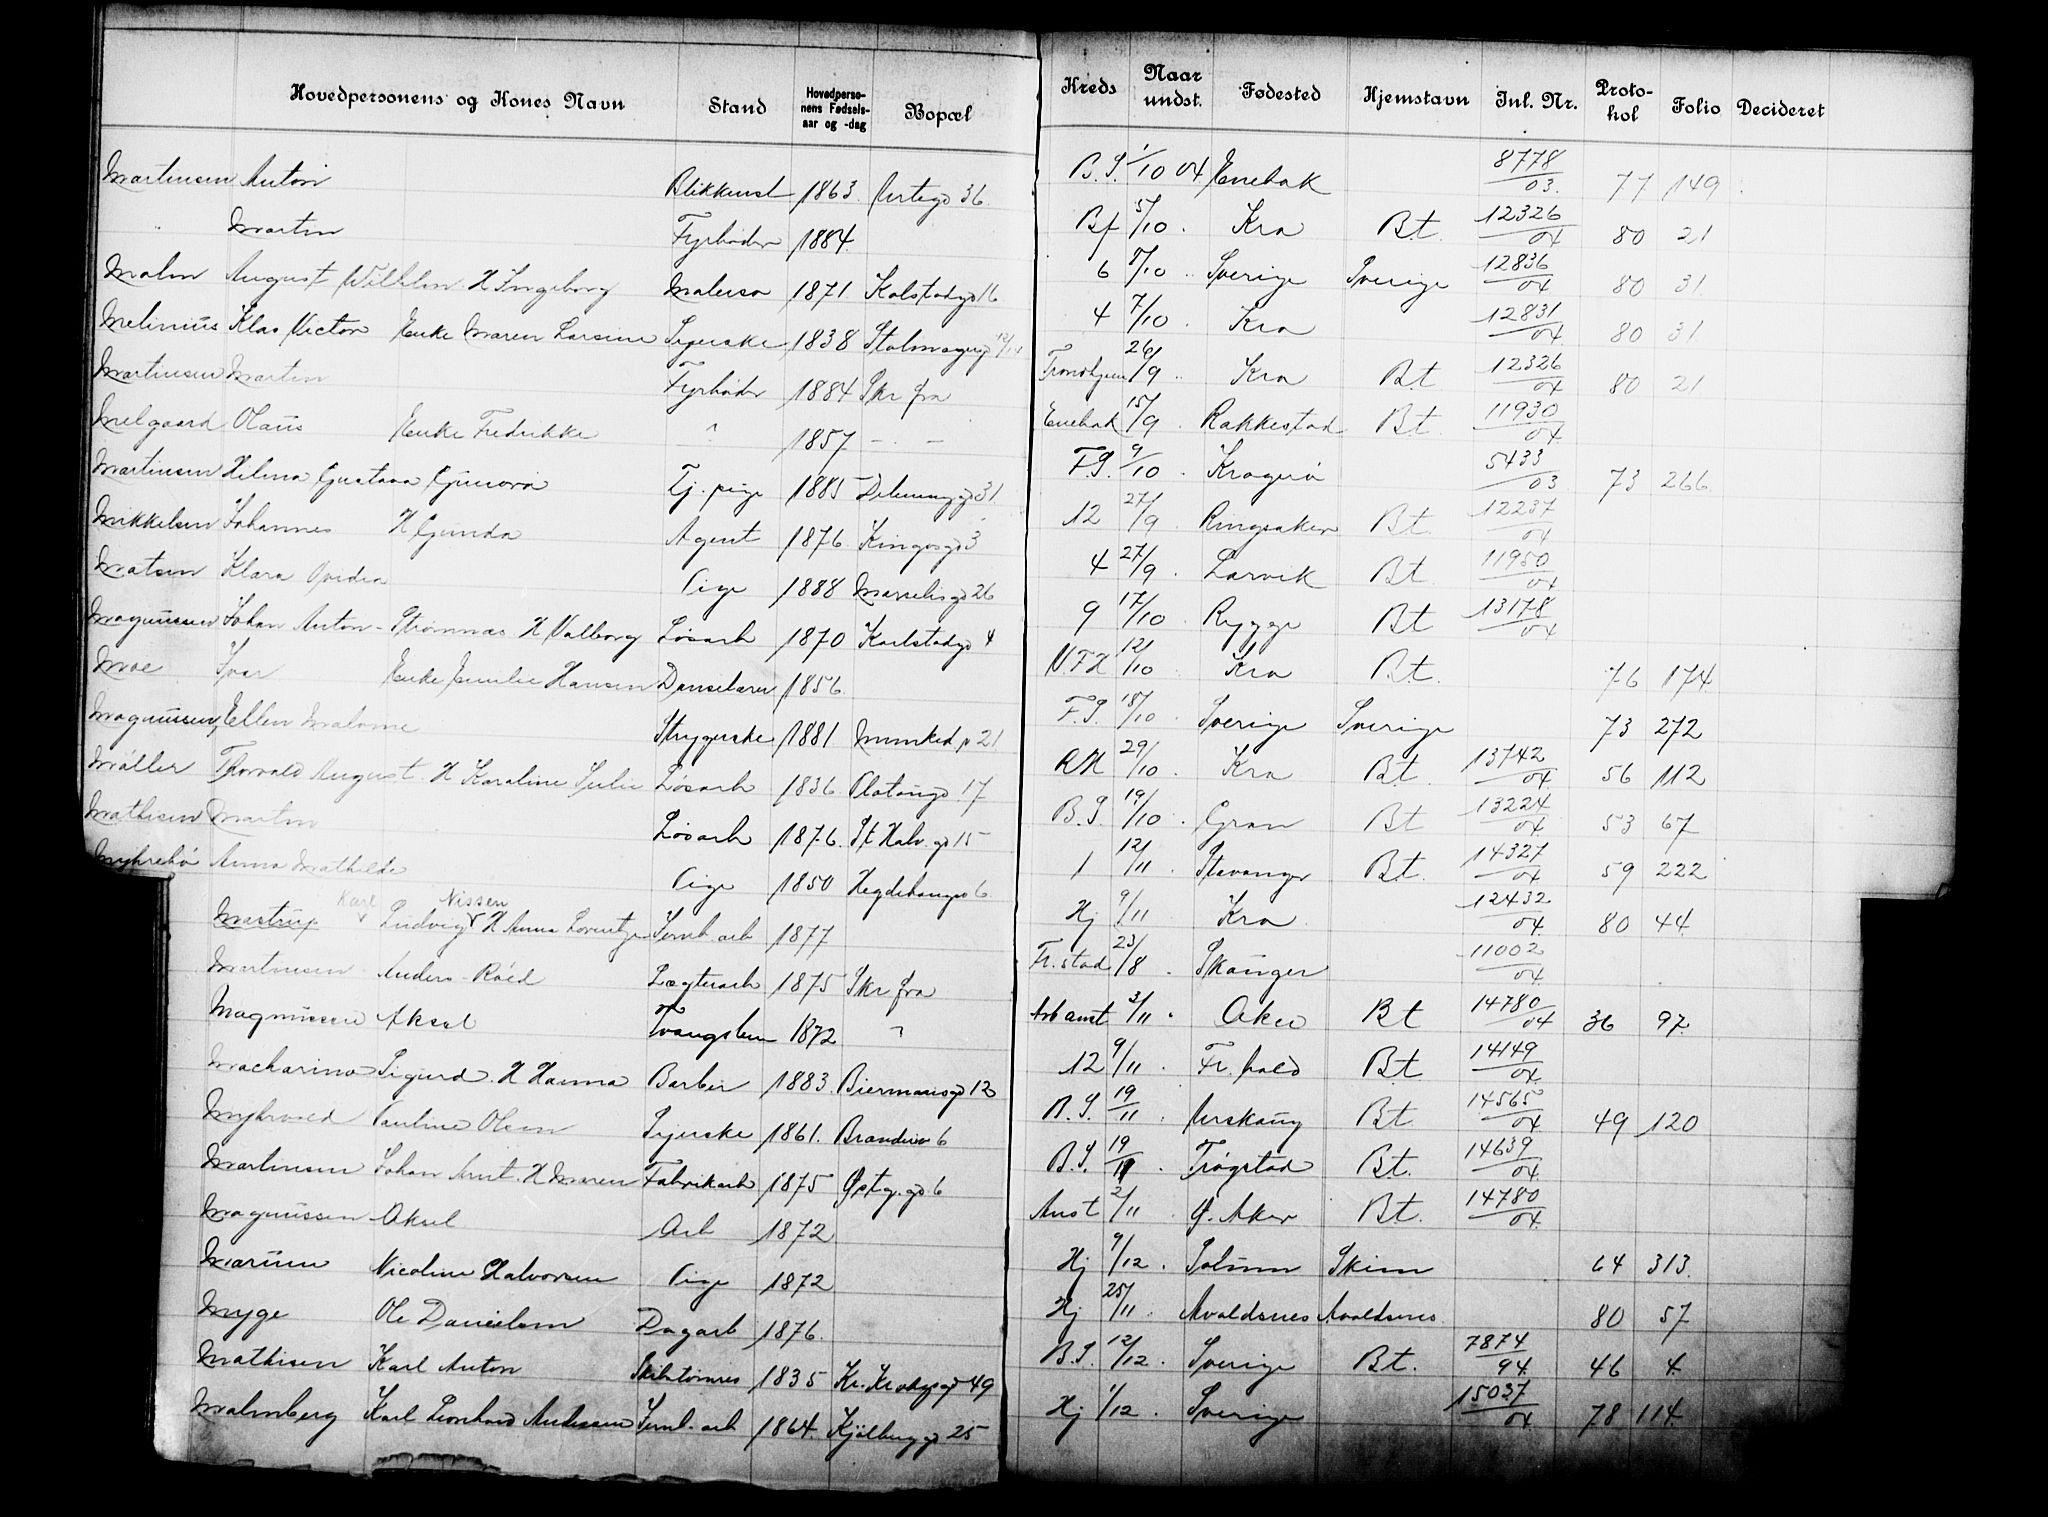 Hovedpersonens og Kones Navn Stand Hovedpersonens Fødselsaar og -dag Bopæl Kreds Naar undst. Fødested Hjemstavn Inl. Nr. Protokol Folio Decideret
Martinsen Anton Blikkensl 1863. 36 B.S. 1/10 04 Enebak 8778/03. 77 149
Martin Fyrbøder 1884. Bf 5/10. Kra Bt. 12326/04 80 21
Malm August Wilhelm H Ingeborg Malersv 1871 Kolstadgd 16 6 8/10 Sverige Sverige 12836/04 80 31
Melinius Klas Victor Enke Maren Larsine Syerske 1838 Stolmagergd 4 7/10. Kra 12831/04. 80 31
Martinsen Martin Fyrbøder 1884 Skr fra Trondhjem 26/9 Kra Bt 12326/04 80 21
Melgaard Olaus Enke Fredrikke 1857 - - Enebak 15/9 Rakkestad Bt. 11930/04
Martinsen Helena Gustava Gunova Tj. pige 1885 31. F.S. 9/10. Kragerø 5433/03 73 266
Mikkelsen Johannes H Gunda Agent 1876 Kingosgd 3 12 27/9. Ringsaker Bt. 12237/04
Matsen Klara Ovidia Pige 1888 26 4 27/9. Larvik Bt. 11950/04
Magnussen Johan Anton - Strømnæs H Valborg Løsarb 1870 Karlstadgd 4 9 17/10. Rygge Bt 13178/04
Moe Ivar Enke Emilie Hansen Danselærer 1856. V.F.H 12/10 Kra Bt. 76 174
Magnussen, Ellen Malvine Strygerske 1881 Munked v 21 F.S. 18/10. Sverige Sverige 73 272
Møller Thorvald August. H Karoline Julie Løsarb 1836 Platougd 17 RK 29/10. Kra Bt. 13742/04 56 112
Mathisen Martin Løsarb 1876. St Halv. gd 15 B.S. 19/10. Gran Bt 13224/04. 53 67
Myhrebø Anna Mathilde Pige 1850 Hegdehaugsv 6 1 12/11. Stavanger Bt. 14327/04 59 222
Karl Nissen
Mastrup Ludvig H Anna Lorentze Jernb. arb 1877 Hj 9/11 Kra 12432/04. 80 44.
Martinsen Anders Røed Lægterarb 1875 Skr fra Fr.stad 23/8. Skauger 11002/04.
Magnussen Aksel Tvangslem 1872 " Arb anst 3/11. Aker Bt 14780/04 36 97.
Macharino Sigurd. H Hanna Barber 1883. Biermansgd 12 12 9/11. Fr. hald Bt. 14149/04.
Myhrvold Pauline Olsen Syerske 1861. Brandvv 6 B.S. 19/11. Aurskoug Bt. 14565/04 49 120
Martinsen Johan Arnt. H Maren Fabrikarb 1875 6 B.S. 19/11. Trøgstad Bt. 14639/04.
Magnussen Aksel Arb 1872 Anst 2/11. Ø. Aker Bt. 14780/04.
Marum Nicoline Halvorsen Pige 1872 Hj 9/12. Solum Skien 64 313.
Myge Ole Danielsen Dagarb 1876. Hj 25/11. Avaldsnes Avaldsnes 80 57
Mathisen Karl Anton Skibstømrer 1835 Kr. Kroghsgd 49 B.S. 12/12. Sverige Bt. 7874/94. 46 4.
Malmberg Karl Leonhard Andersen Jernb. arb 1864. Kjølberggd 25 Hj 1/12. Sverige 15037/04. 78 114.